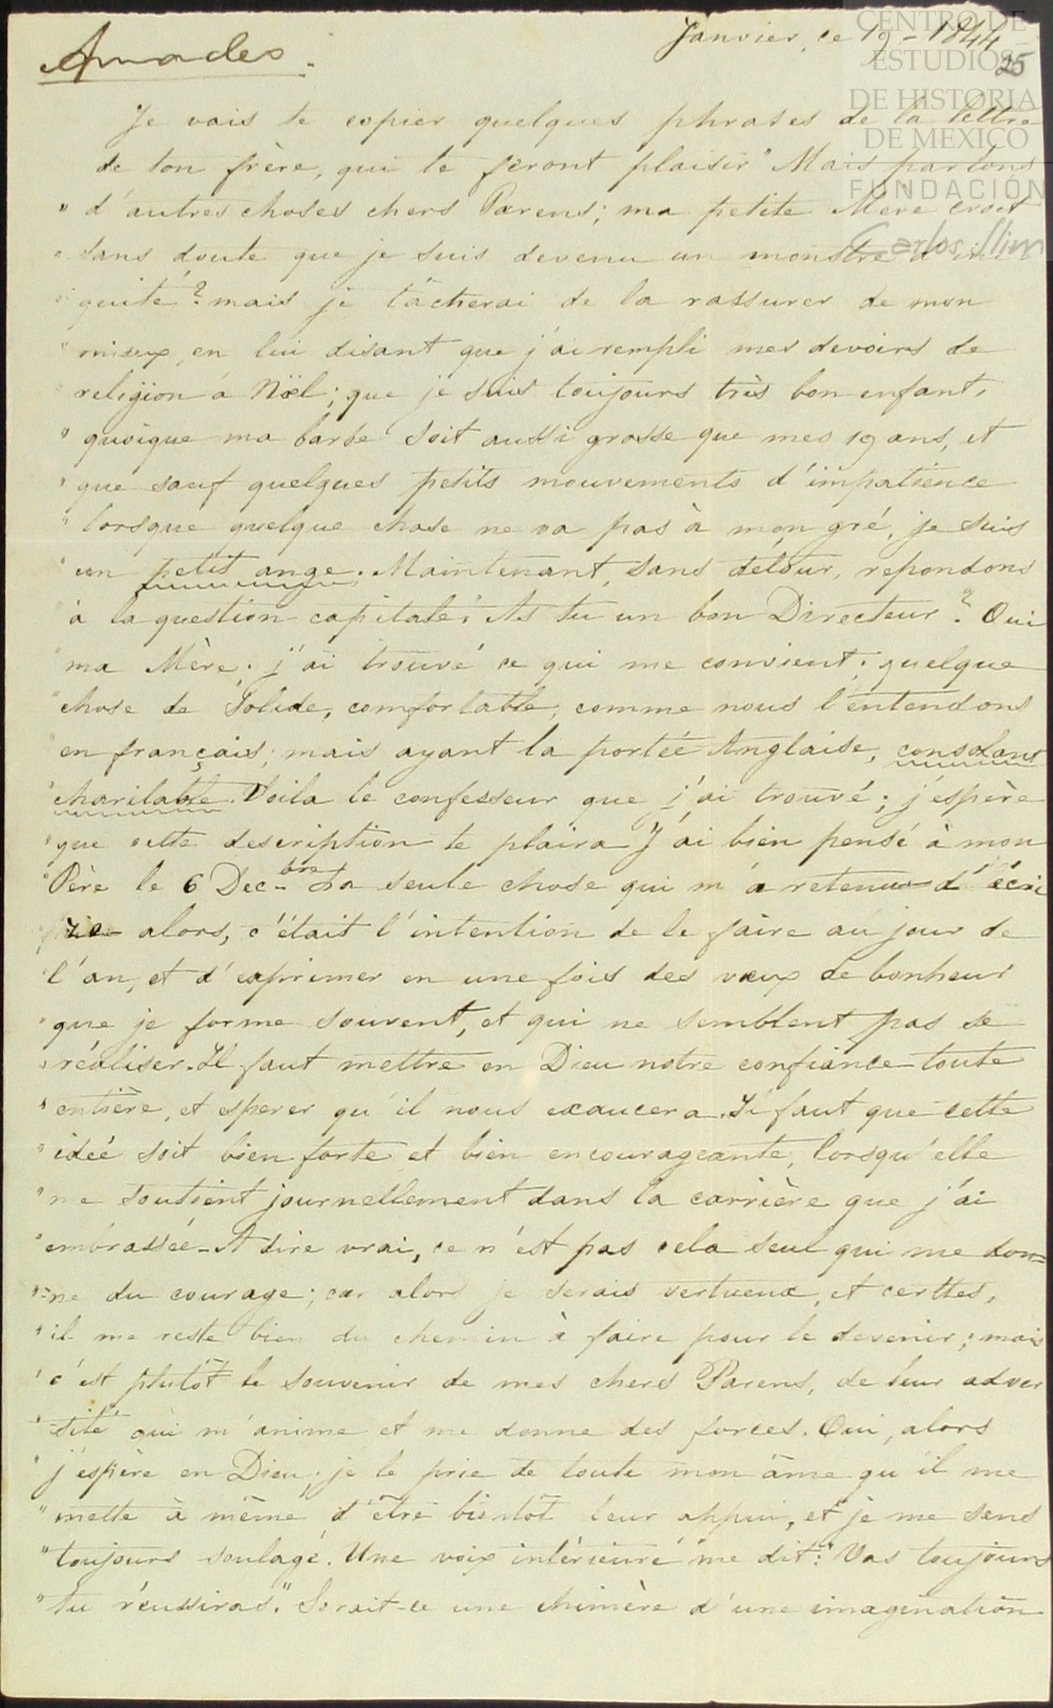 Janvier, ce 19 - 1844
25
Amadeo.
CENTRO DE
ESTUDIOS
DE HISTORIA
DE MEXICO
FUNDACIÓN
Carlos Slim
Je vais te copier quelques phrases de la lettre
de ton frère, qui te feront plaisir "Mais parlons
" d'autres choses chers Parens; ma petite Mere croit
" sans doute que je suis devenu un monstre d'ini
" quité? mais je tâcherai de la rassurer de mon
" mieux, en lui disant que j'ai rempli mes devoirs de
" religion à Nöel; que je suis toujours très bon enfant,
" quoique ma barbe soit aussi grosse que mes 19 ans, et
" que sauf quelques petits mouvements d'impatience
" lorsque quelque chose ne va pas à mon gré, je suis
" un petit ange. Maintenant, sans detour, repondons
" à la question capitale. "As tu un bon Directeur"? Oui
" ma Mère; j'ai trouvé ce qui me convient; quelque
" chose de Solide, comfortable, comme nous l'entendons
" en français; mais ayant la porteé Anglaise, consolant
" charitable. Voila le confesseur que j'ai trouvé; j'espère
" que cette description te plaira J'ai bien pensé à mon
" Père le 6 Decbre La seule chose qui m'a retenu d'écri
re alors, c'était l'intention de le faire au jour de
" l'an, et d'exprimer en une fois des vœux de bonheur
" que je forme souvent, et qui ne semblent pas se
" réaliser. Il faut mettre en Dieu notre confiance toute
" entière, et esperer qu'il nous exaucera. Il faut que cette
" ideé soit bien forte et bien encourageante, lorsqu'elle
" me soutient journellement dans la carrière que j'ai
" embrasseé. A dire vrai, ce n'est pas cela seul qui me don=
"=ne du courage; car alors je serais vertueux, et certtes,
" il me reste bien du chemin à faire pour le devenir; mais
" c'est plutôt le souvenir de mes chers Parens, de leur adver
"-sité qui m'anime et me donne des forces. Oui, alors
" j'espère en Dieu; je le prie de toute mon âme qu'il me
" mette à même d'être bientôt leur appui, et je me sens
" toujours soulagé. Une voix intérieure me dit: "Vas toujours
" tu réussiras". Serait-ce une chimère d'une imagination